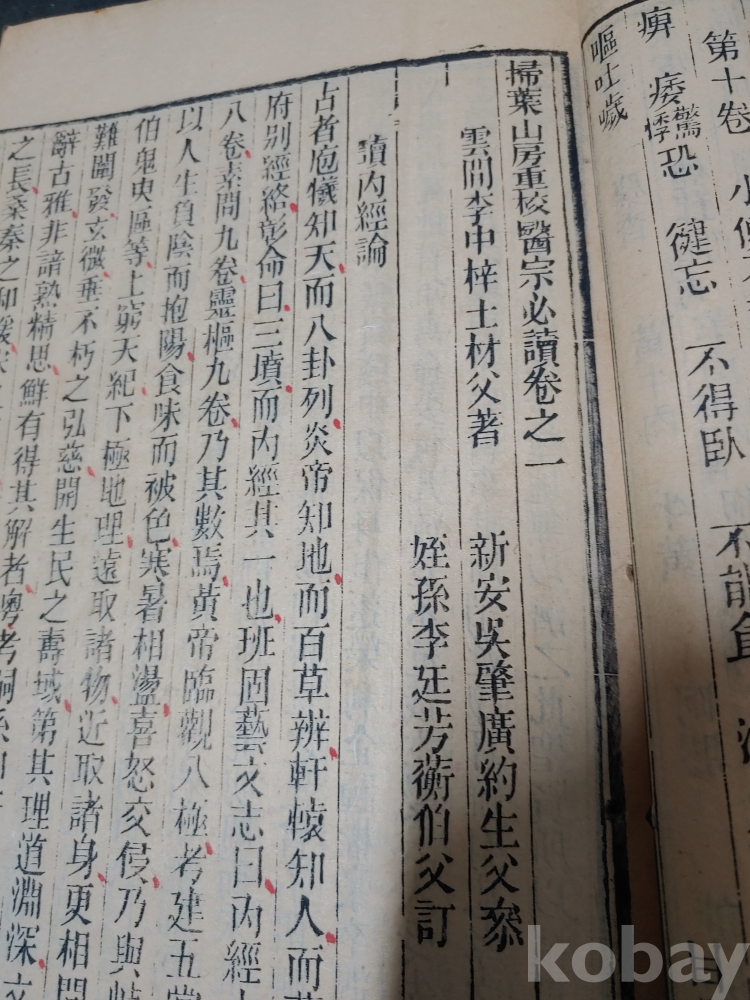 第十卷 小便
痹 痿 驚悸 恐 健忘 不得臥 不能食
嘔吐噦
掃葉山房重校醫宗必讀卷之一
雲間李中梓士材父著 新安吳肇廣約生父叅
姪孫李廷芳蘅伯父訂
讀內經論
古者庖犧知天而八卦列炎帝知地而百草辨軒轅知人而
府別經絡彰命曰三墳而內經其一也班固藝文志曰內經
八卷素問九卷靈樞九卷乃其數焉黃帝臨觀八極考建五
以人生負陰而抱陽食味而被色寒暑相盪喜怒交侵乃與
伯鬼臾區等上窮天紀下極地理遠取諸物近取諸身更相問
難闡發玄微垂不朽之弘慈開生民之壽域第其理道淵深文
辭古雅非諳熟精思鮮有得其解者粵考
之長桑秦之和緩
kobay